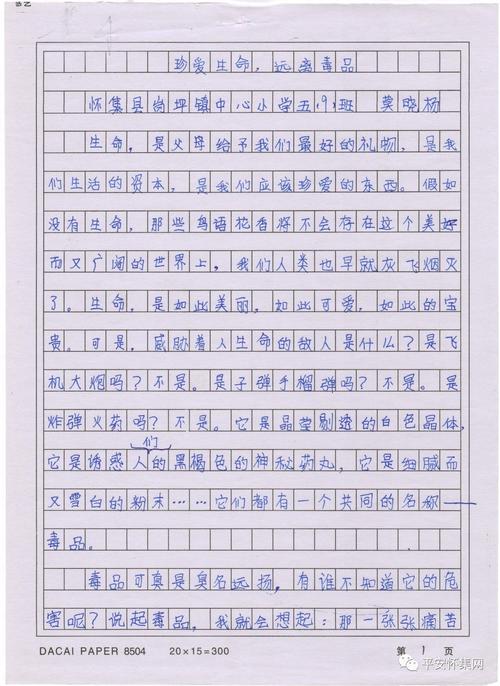 珍爱生命，远离毒品
怀集县岗坪镇中心小学五(9)班 莫晓杨
生命，是父母给予我们最好的礼物，是我
们生活的资本，是我们应该珍爱的东西。假如
没有生命，那些鸟语花香将不会存在这个美好
而又广阔的世界上，我们人类也早就灰飞烟灭
了。生命，是如此美丽，如此可爱，如此的宝
贵。可是，威胁着人生命的敌人是什么？是飞
机大炮吗？不是。是子弹手榴弹吗？不是。是
炸弹火药吗？不是。它是晶莹剔透的白色晶体，
它是诱惑人们的黑褐色的神秘药丸，它是细腻而
又雪白的粉末……它们都有一个共同的名称——
毒品。
毒品可真是臭名远扬，有谁不知道它的危
害呢？说起毒品，我就会想起：那一张张痛苦
DACAI PAPER 8504 20×15=300 第 1 页
平安怀集网